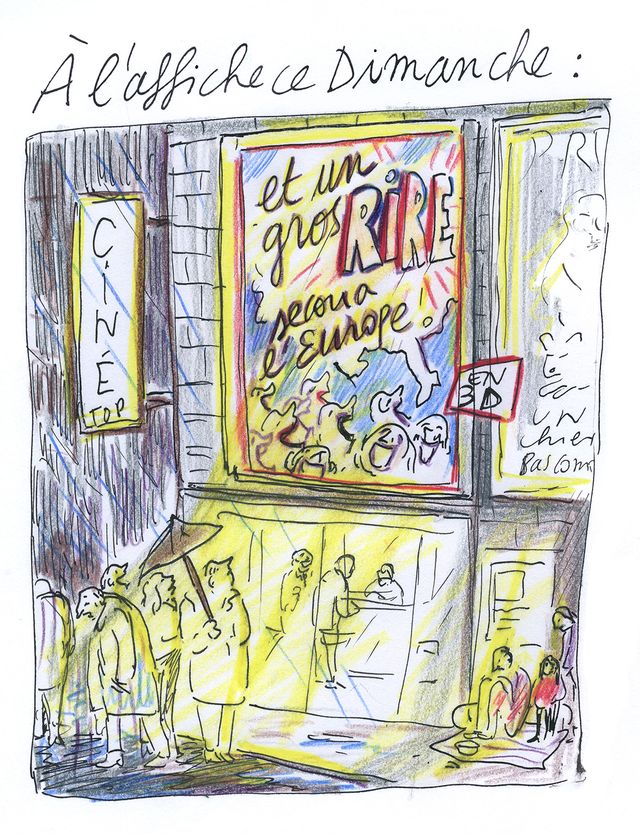 À l'affiche ce Dimanche :
CINÉ
TOP
et un
gros RIRE
secoua
l'Europe !
EN
3D
PRE
UN
chien
Pas Comm